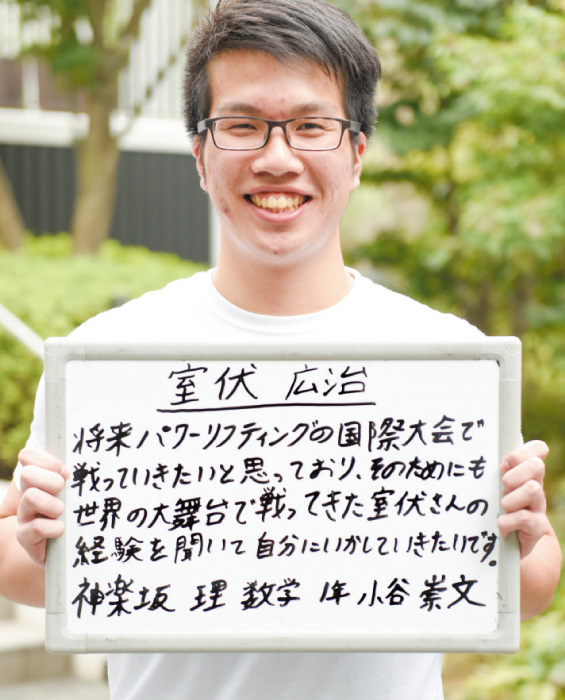 室伏 広治
将来パワーリフティングの国際大会で
戦っていきたいと思っており、そのためにも
世界の大舞台で戦ってきた室伏さんの
経験を聞いて自分にいかしていきたいです。
神楽坂 理 数学 1年 小谷 崇文